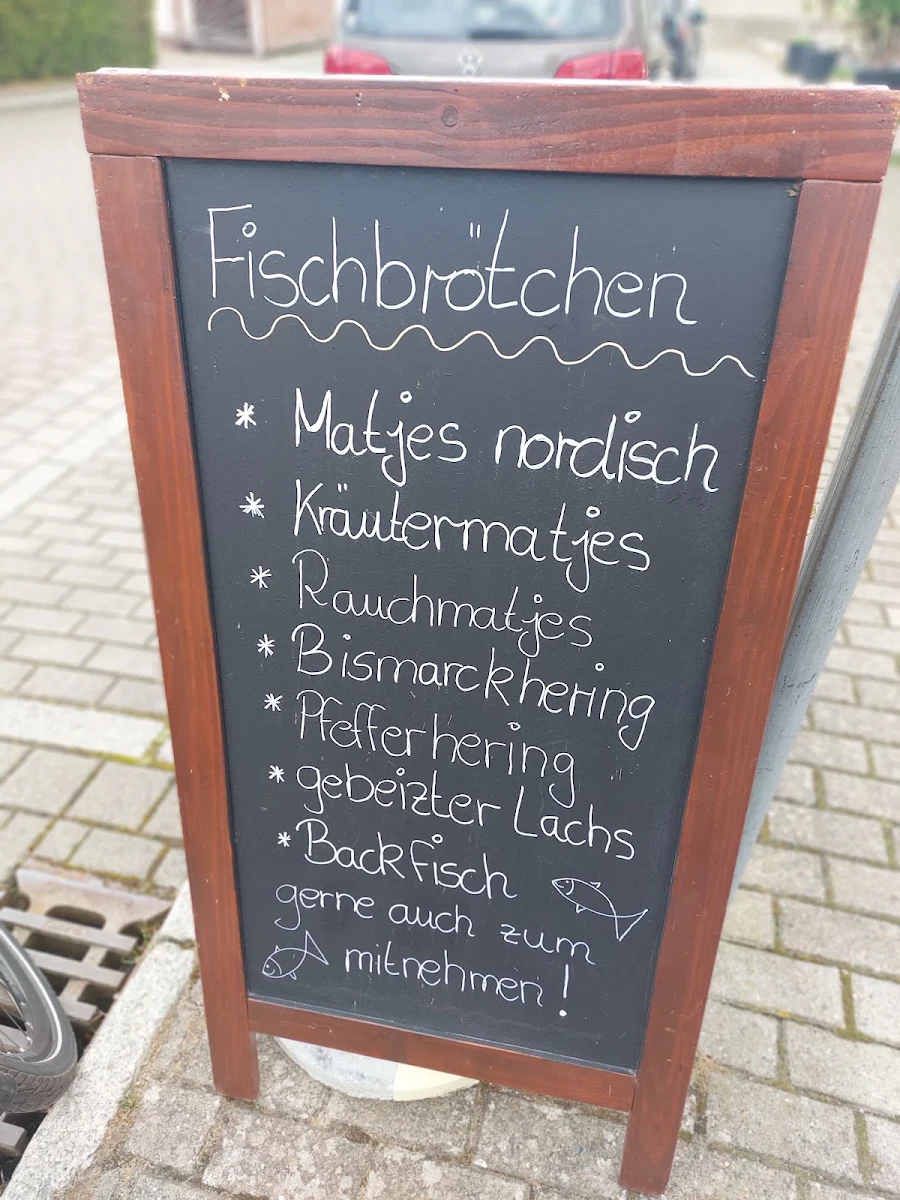 Fischbrötchen
* Matjes nordisch
* Kräutermatjes
* Rauchmatjes
* Bismarckhering
* Pfefferhering
* gebeizter Lachs
* Backfisch
gerne auch zum
mitnehmen!